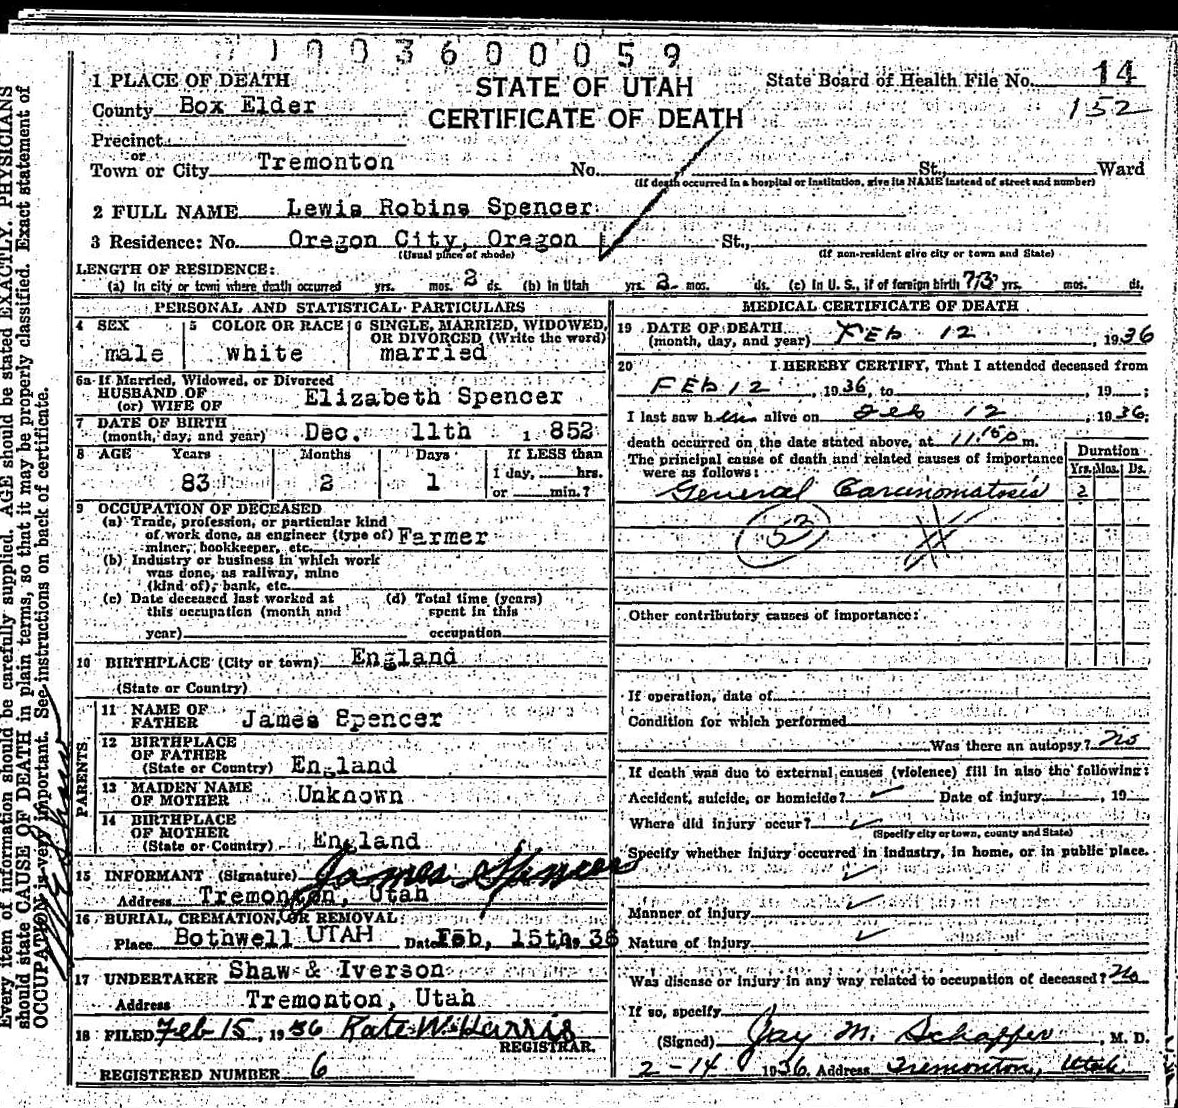 7 1 0 0 3 6 0 0 0 5 9
STATE OF UTAH
CERTIFICATE OF DEATH
State Board of Health File No. 14
152
1 PLACE OF DEATH
County Box Elder
Precinct
or
Town or City Tremonton No. St., Ward
(If death occurred in a hospital or institution, give its NAME instead of street and number)
2 FULL NAME Lewis Robins Spencer
3 Residence: No. Oregon City, Oregon St.,
(Usual place of abode) (If non-resident give city or town and State)
LENGTH OF RESIDENCE:
(a) In city or town where death occurred yrs. mos. 2 ds. (b) in Utah yrs. 2 mos. ds. (c) In U. S., if of foreign birth 73 yrs. mos. ds.
PERSONAL AND STATISTICAL PARTICULARS
4 SEX
male
5 COLOR OR RACE
white
6 SINGLE, MARRIED, WIDOWED,
OR DIVORCED (Write the word)
married
6a If Married, Widowed, or Divorced
HUSBAND OF
(or) WIFE OF Elizabeth Spencer
7 DATE OF BIRTH
(month, day, and year) Dec. 11th 1852
8 AGE Years Months Days If LESS than
1 day, hrs.
or min.?
83 2 1
9 OCCUPATION OF DECEASED
(a) Trade, profession, or particular kind
of work done, as engineer (type of) Farmer
miner, bookkeeper, etc.
(b) Industry or business in which work
was done, as railway, mine
(kind of), bank, etc.
(c) Date deceased last worked at
this occupation (month and
year)
(d) Total time (years)
spent in this
occupation
10 BIRTHPLACE (City or town) England
(State or Country)
PARENTS
11 NAME OF
FATHER James Spencer
12 BIRTHPLACE
OF FATHER
(State or Country) England
13 MAIDEN NAME
OF MOTHER Unknown
14 BIRTHPLACE
OF MOTHER
(State or Country) England
15 INFORMANT (Signature) James Spencer
Address Tremonton, Utah
16 BURIAL, CREMATION, OR REMOVAL:
Place Bothwell UTAH Date Feb, 15th, 36
17 UNDERTAKER Shaw & Iverson
Address Tremonton, Utah
18 FILED Feb 15, 1936 Kate W. Harris
REGISTRAR.
REGISTERED NUMBER 6
MEDICAL CERTIFICATE OF DEATH
19 DATE OF DEATH
(month, day, and year) FEB 12, 1936
20 I HEREBY CERTIFY, That I attended deceased from
FEB 12, 1936, to , 19 ;
I last saw him alive on Feb 12, 1936;
death occurred on the date stated above, at 11:15 p m.
The principal cause of death and related causes of importance
were as follows:
Duration
Yrs. Mos. Ds.
General Carcinomatosis 2
53
Other contributory causes of importance:
If operation, date of
Condition for which performed
Was there an autopsy? No
If death was due to external causes (violence) fill in also the following:
Accident, suicide, or homicide? Date of injury , 19
Where did injury occur?
(Specify city or town, county and State)
Specify whether injury occurred in industry, in home, or in public place.
Manner of injury
Nature of injury
Was disease or injury in any way related to occupation of deceased? No
If so, specify
(Signed) Jay M. Schaffer, M. D.
2-14 1936, Address Tremonton, Utah.
Every item of information should be carefully supplied. AGE should be stated EXACTLY. PHYSICIANS
should state CAUSE OF DEATH in plain terms, so that it may be properly classified. Exact statement of
OCCUPATION is very important. See instructions on back of certificate.